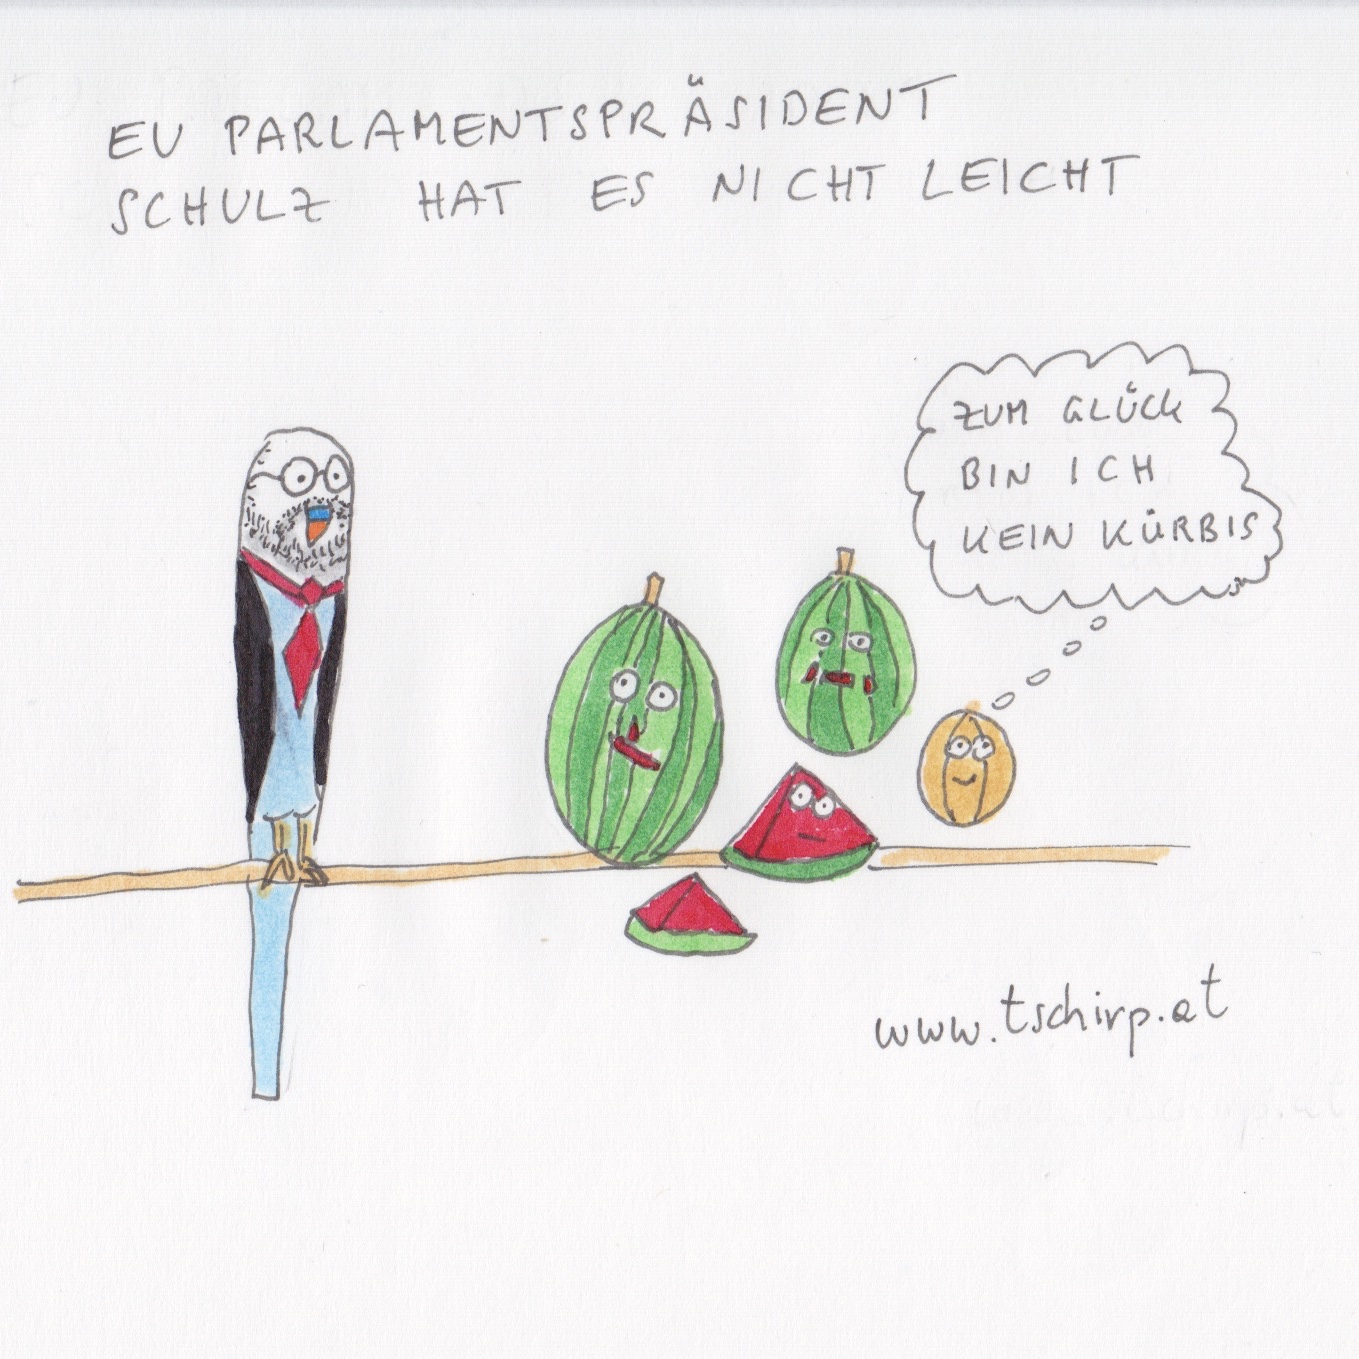 EU PARLAMENTSPRÄSIDENT
SCHULZ HAT ES NICHT LEICHT
ZUM GLÜCK
BIN ICH
KEIN KÜRBIS
www.tschirp.at